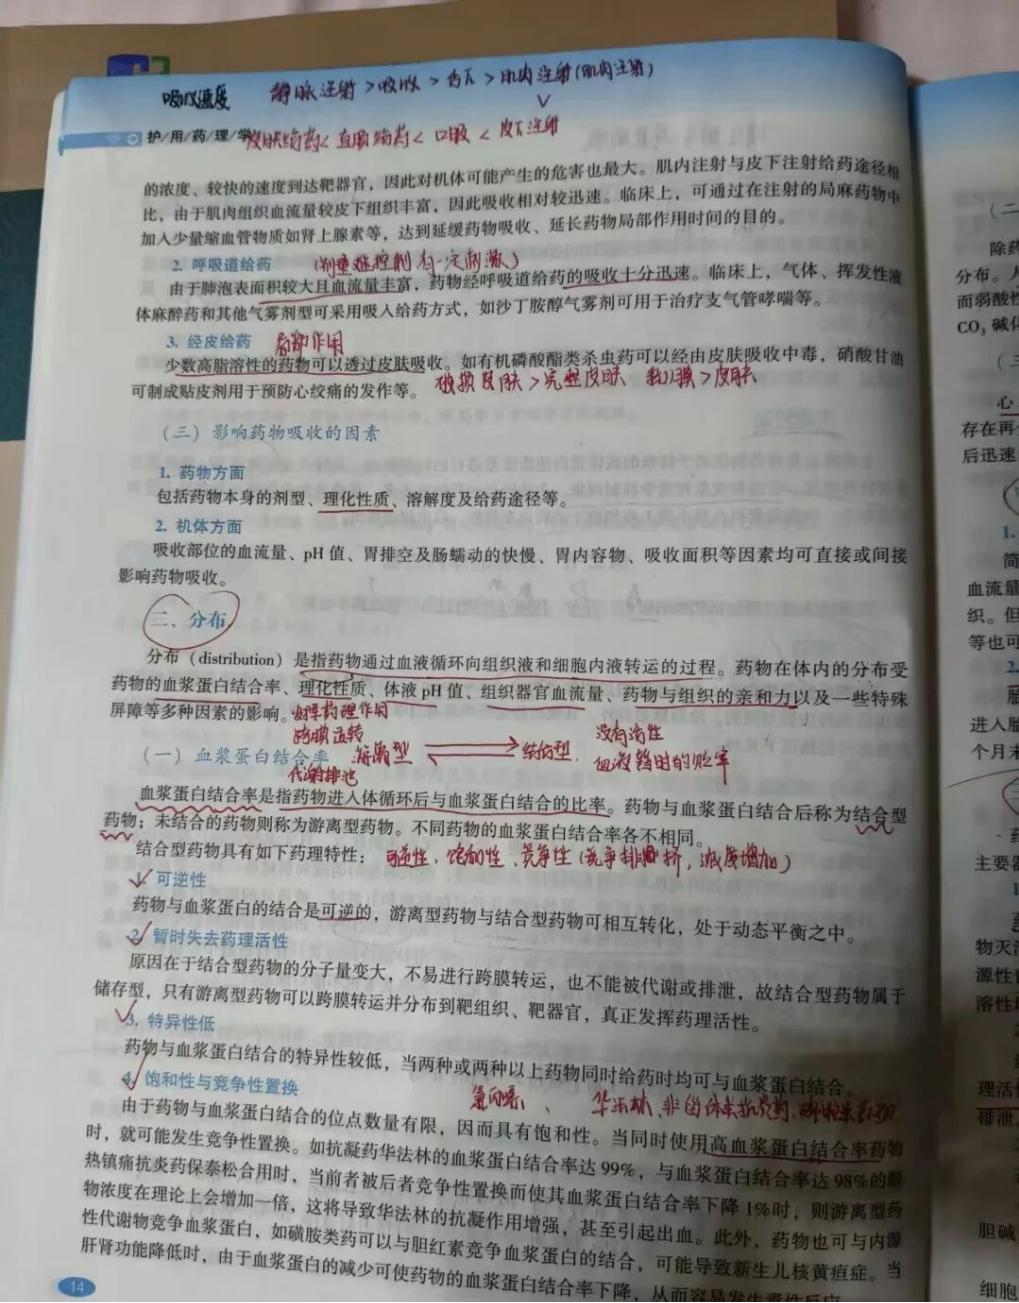 吸收速度 静脉注射>吸收>舌下>肌肉注射(肌肉注射)
护/用/药/理/学 皮肤给药< 直肠给药< 口服 < 皮下注射
的浓度、较快的速度到达靶器官，因此对机体可能产生的危害也最大。肌内注射与皮下注射给药途径相
比，由于肌肉组织血流量较皮下组织丰富，因此吸收相对较迅速。临床上，可通过在注射的局麻药物中
加入少量缩血管物质如肾上腺素等，达到延缓药物吸收、延长药物局部作用时间的目的。
2. 呼吸道给药
由于肺泡表面积较大且血流量丰富，药物经呼吸道给药的吸收十分迅速。临床上，气体、挥发性液
体麻醉药和其他气雾剂型可采用吸入给药方式，如沙丁胺醇气雾剂可用于治疗支气管哮喘等。
3. 经皮给药 局部作用
少数高脂溶性的药物可以透过皮肤吸收。如有机磷酸酯类杀虫药可以经由皮肤吸收中毒，硝酸甘油
可制成贴皮剂用于预防心绞痛的发作等。 破损皮肤>完整皮肤 黏膜>皮肤
（三）影响药物吸收的因素
1. 药物方面
包括药物本身的剂型、理化性质、溶解度及给药途径等。
2. 机体方面
吸收部位的血流量、pH 值、胃排空及肠蠕动的快慢、胃内容物、吸收面积等因素均可直接或间接
影响药物吸收。
二、分布
分布（distribution）是指药物通过血液循环向组织液和细胞内液转运的过程。药物在体内的分布受
药物的血浆蛋白结合率、理化性质、体液 pH 值、组织器官血流量、药物与组织的亲和力以及一些特殊
屏障等多种因素的影响。 发挥药理作用
跨膜运转 没有活性
（一）血浆蛋白结合率 游离型 结合型 血液暂时的贮库
代谢排泄
血浆蛋白结合率是指药物进入体循环后与血浆蛋白结合的比率。药物与血浆蛋白结合后称为结合型
药物；未结合的药物则称为游离型药物。不同药物的血浆蛋白结合率各不相同。
结合型药物具有如下药理特性： 可逆性、饱和性、竞争性
1. 可逆性
药物与血浆蛋白的结合是可逆的，游离型药物与结合型药物可相互转化，处于动态平衡之中。
2. 暂时失去药理活性
原因在于结合型药物的分子量变大，不易进行跨膜转运，也不能被代谢或排泄，故结合型药物属于
储存型，只有游离型药物可以跨膜转运并分布到靶组织、靶器官，真正发挥药理活性。
3. 特异性低
药物与血浆蛋白结合的特异性较低，当两种或两种以上药物同时给药时均可与血浆蛋白结合。
4. 饱和性与竞争性置换 华法林、
由于药物与血浆蛋白结合的位点数量有限，因而具有饱和性。当同时使用高血浆蛋白结合率药物
时，就可能发生竞争性置换。如抗凝药华法林的血浆蛋白结合率达 99%，与血浆蛋白结合率达 98%的解
热镇痛抗炎药保泰松合用时，当前者被后者竞争性置换而使其血浆蛋白结合率下降 1%时，则游离型药
物浓度在理论上会增加一倍，这将导致华法林的抗凝作用增强，甚至引起出血。此外，药物也可与内源
性代谢物竞争血浆蛋白，如磺胺类药可以与胆红素竞争血浆蛋白的结合，可能导致新生儿核黄疸症。当
肝肾功能降低时，由于血浆蛋白的减少可使药物的血浆蛋白结合率下降，从而容易发生毒性反应
14
（二
除药
分布。
而弱酸性
CO₂ 碱化
心
存在再
后迅速
1.
简
血流量
织。但
等也可
2.
进入脑
个月末
药
主要器
物灭
源性
溶性
理活
排泄
胆碱
细胞